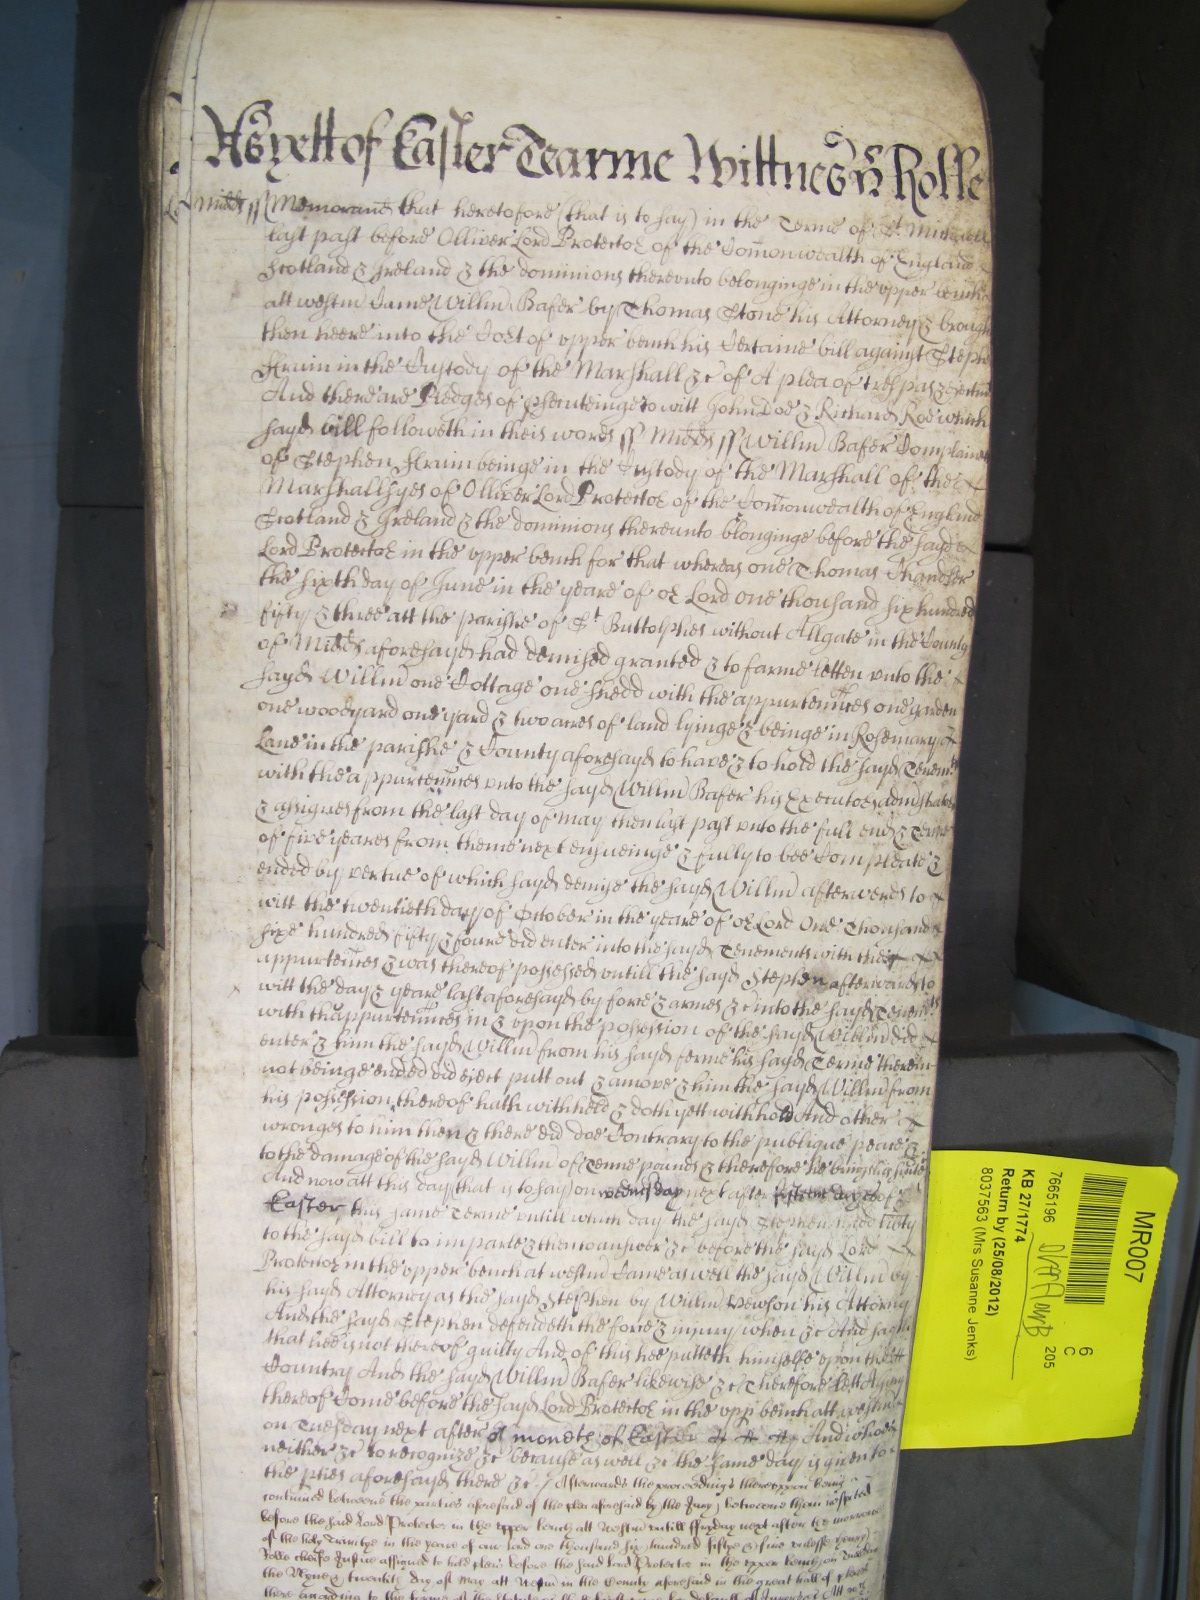 As yett of Easter Tearme Wittnes H Rolle
Midds ss Memorand that heretofore (that is to say) in the Terme of St Michaell
last past before Olliver Lord Protector of the Comonwealth of England &
Scotland & Ireland & the dominions thereunto belonginge in the upper bench
att westm Came Willm Baker by Thomas Stone his Attorney & brought
then heere into the Cort of upper bench his Certaine bill against Stephen
in the Custody of the Marshall &c of A plea of trespas &
And there are Pledges of prsecuteinge to witt John Doe & Richard Roe which
sayd bill followeth in theis words ss Midds ss Willm Baker Complaines
of Stephen beinge in the Custody of the Marshall of the
Marshallsyes of Olliver Lord Protector of the Comonwealth of England
Scotland & Ireland & the dominions thereunto belonginge before the sayd
Lord Protector in the upper bench for that whereas one Thomas Chandler
the sixth day of June in the yeare of or Lord one thousand six hundred
fifty & three att the parishe of St Buttolphes without Allgate in the County
of Midds aforesayd had demised granted & to farme letten unto the
sayd Willm one Cottage one shedd with the appurtennces one garden
one woodyard one yard & two acres of land lyinge & beinge in Rosemary
Lane in the parishe & County aforesayd to have & to hold the sayd Tenemts
with the appurtennces unto the sayd Willm Baker his Executors
& assignes from the last day of may then last past unto the full end & Terme
of five yeares from thence next ensueinge & fully to bee Compleate &
ended by vertue of which sayd demise the sayd Willm afterwards to
witt the twentieth day of October in the yeare of or Lord One Thousand
sixe hundred fifty & foure did enter into the sayd Tenements with the
appurtennces & was thereof possessed untill the sayd Stephen afterwards to
witt the day & yeare last aforesayd by force & armes &c into the sayd Tenemts
with thappurtennces in & upon the possession of the sayd Willm did
enter & him the sayd Willm from his sayd ferme his sayd Terme therein
not beinge ended did eject putt out & amove & him the sayd Willm from
his possession thereof hath withheld & doth yett withhold And other
wronges to him then & there did doe Contrary to the publique peace &
to the damage of the sayd Willm of Tenne pounds & therefore he brings his suite
And now att this day (that is to say) on wednesday next after fifteene dayes of
Easter this same Terme untill which day the sayd Stephen had liberty
to the sayd bill to imparle & then to answer &c before the sayd Lord
Protector in the upper bench at westm Came as well the sayd Willm by
his sayd Attorney as the sayd Stephen by Willm his Attorny
And the sayd Stephen defendeth the force & injury when &c And sayth
that hee is not thereof guilty And of this hee putteth himselfe upon the
Country And the sayd Willm Baker likewise &c Therefore lett A jury
thereof Come before the sayd Lord Protector in the upp bench att westm
on Tuesday next after A moneth of Easter And who
neither &c to recognize &c because as well &c the same day is given to
the pties aforesayd there &c / Afterwards the proceedings thereuppon being
continued betweene the parties aforesaid of the plea aforesaid by the Jury betweene them respited
before the said Lord Protector in the upper bench att Westm untill ffryday next after the morrowe
of the holy Trinitye in the yeare of our lord one thousand six hundred fiftye & five unlesse Henry
Rolle cheife Justice assigned to hold pleas before the said Lord Protector in the upper bench on
the day of May att Westm in the County aforesaid in the great hall of pleas
there according to the forme of the
MR007
6
C
205
7665196
KB 27/1774
Return by (25/08/2012)
8037563 (Mrs Susanne Jenks)